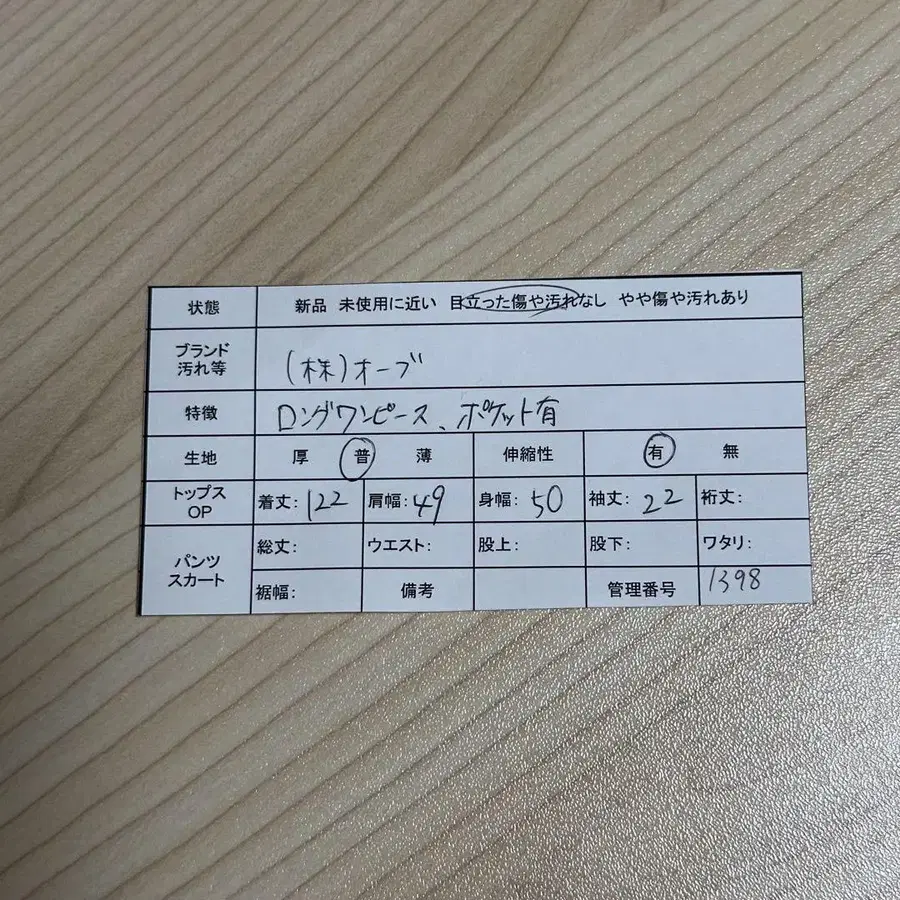 状態 新品 未使用に近い 目立った傷や汚れなし やや傷や汚れあり
ブランド
汚れ等 (株)オーブ
特徴 ロングワンピース、ポケット有
生地 厚 普 薄 伸縮性 有 無
トップス
OP 着丈:122 肩幅:49 身幅:50 袖丈:22 裄丈:
パンツ
スカート 総丈: ウエスト: 股上: 股下: ワタリ:
裾幅: 備考 管理番号 1398